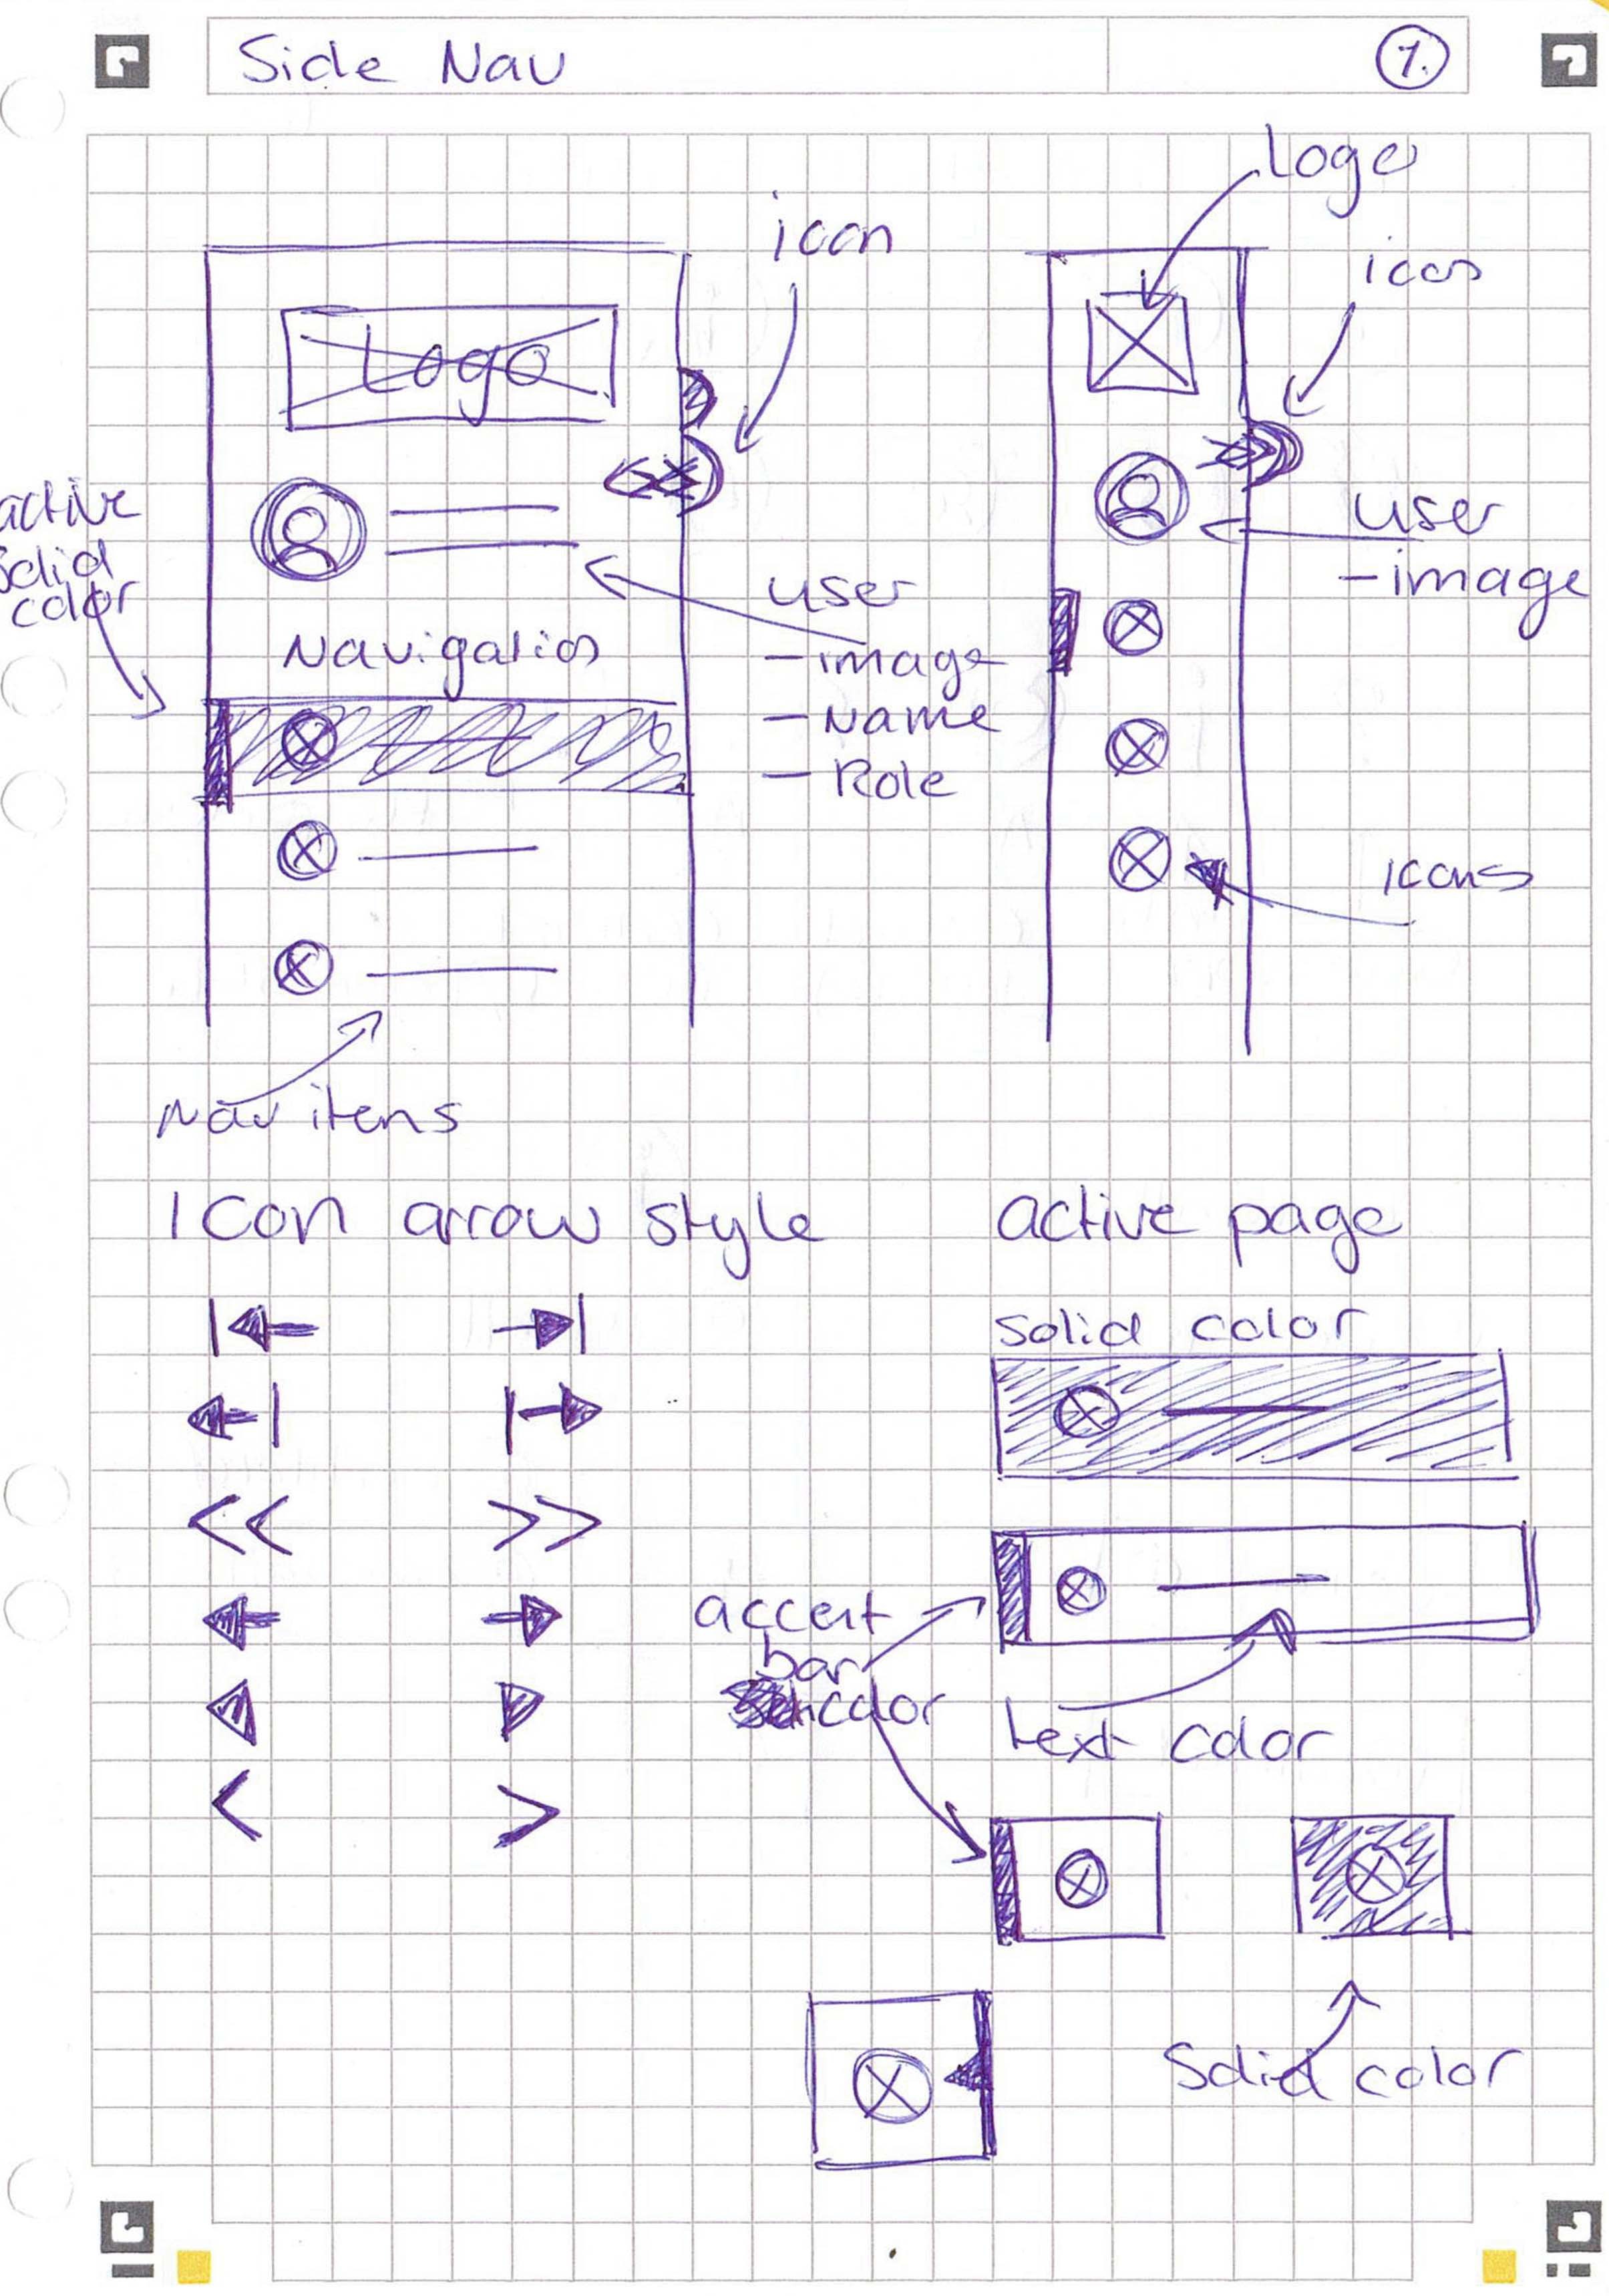 Side Nav
1.
Logo
icon
icon
Logo
active
solid
color
user
-image
user
-image
-Name
-Role
Navigation
icons
Nav itens
Icon arrow style
active page
solid color
<< >>
accent
bar
color
text color
< >
Solid color